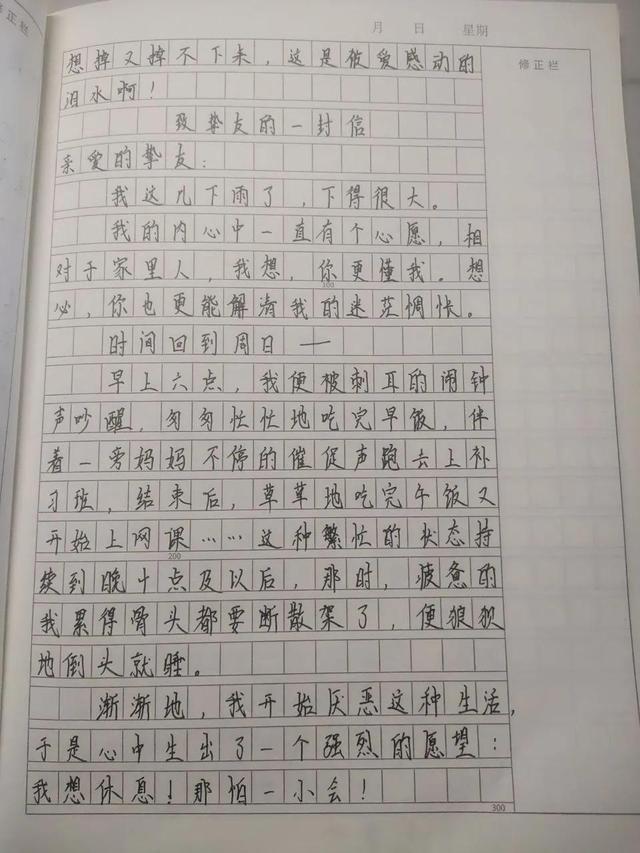 月 日 星期
修正栏
修正栏
想掉又掉不下来，这是被爱感动的
泪水啊！
致挚友的一封信
亲爱的挚友：
我这儿下雨了，下得很大。
我的内心中一直有个心愿，相
对于家里人，我想，你更懂我。想
100
必，你也更能解清我的迷茫惆怅。
时间回到周日——
早上六点，我便被刺耳的闹钟
声吵醒，匆匆忙忙地吃完早饭，伴
着一旁妈妈不停的催促声跑去上补
习班，结束后，草草地吃完午饭又
开始上网课……这种繁忙的状态持
200
续到晚十点及以后，那时，疲惫的
我累得骨头都要断散架了，便狼狈
地倒头就睡。
渐渐地，我开始厌恶这种生活，
于是心中生出了一个强烈的愿望：
我想休息！那怕一小会！
300